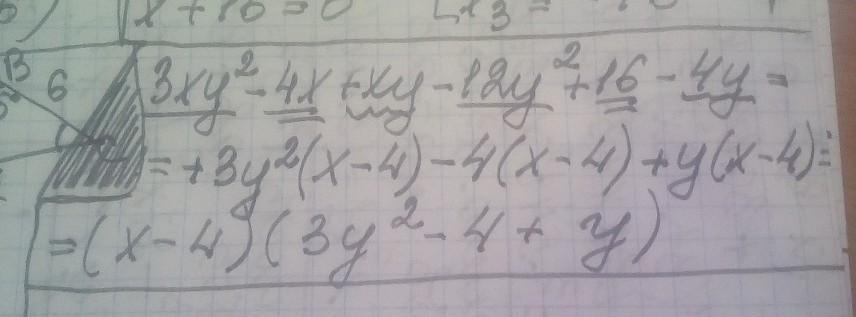 x + 16 = 0
B 6 3xy² - 4x + xy - 12y² + 16 - 4y =
= +3y²(x-4) - 4(x-4) + y(x-4) =
= (x-4)(3y² - 4 + y)